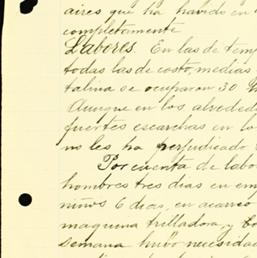 aires que ha habido en
completamente
Labores. En las de temp
todas las de costo, medias
talina se ocuparon 30
Aunque en los alrededo
fuertes escarchas en lo
no les ha perjudicado
Por cuenta de labo
hombres tres dias en em
niños 6 dias, en acarreo
maquina trilladora, y
semana hubo necesidad